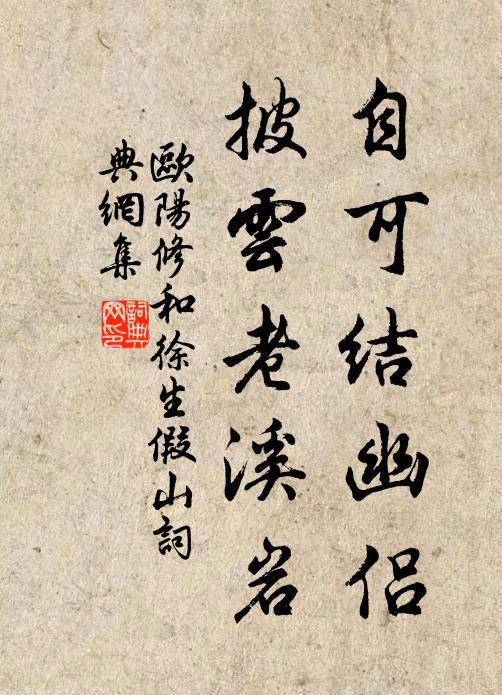 自可結幽侶
披雲老溪岩
歐陽修和徐生假山詞
典網集
詞典網印